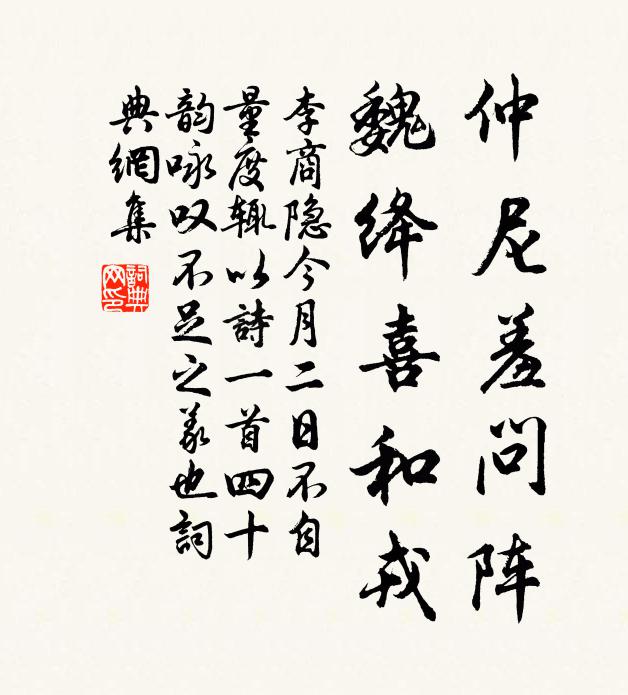 仲尼羞问阵
魏绛喜和戎
李商隐今月二日不自
量度辄以詩一首四十
韵咏叹不足之义也詞
典網集
詞典网印